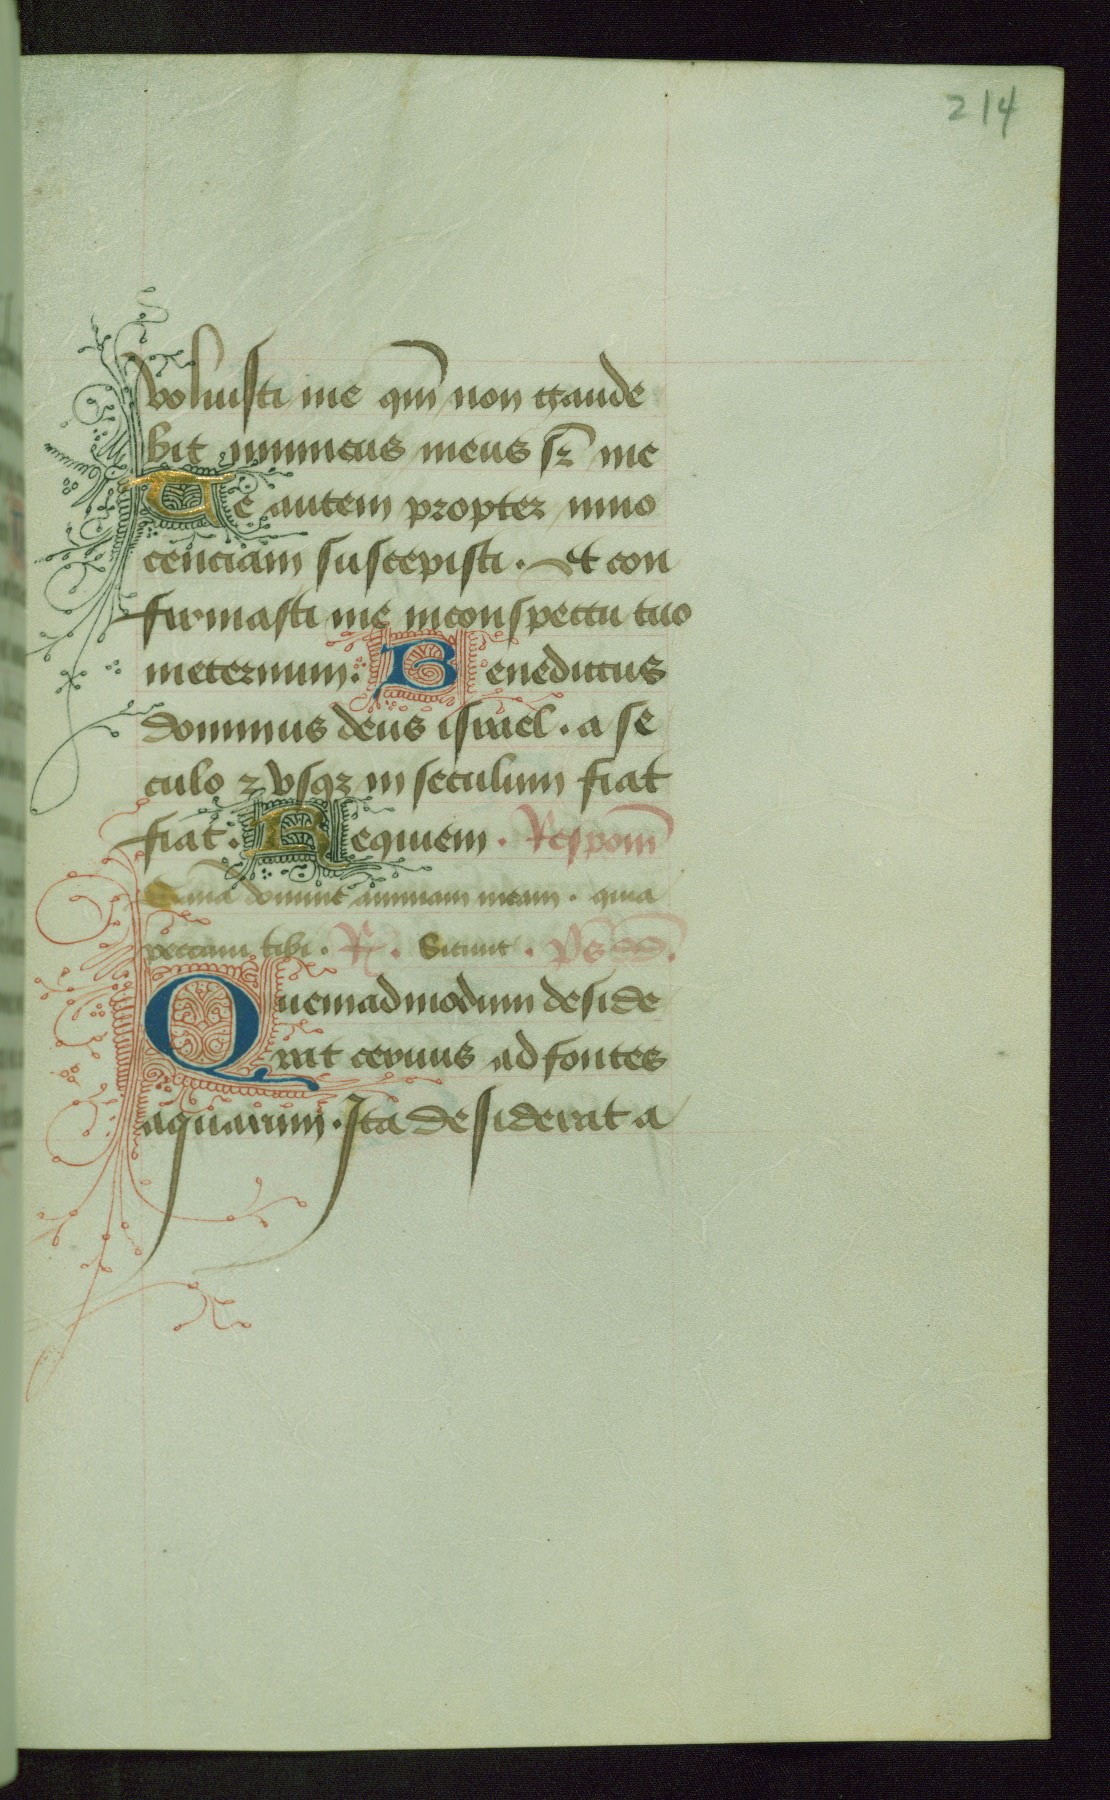 214
voluisti me qm̄ non gaude
bit inimicus meus sꝛ̄ me
Me autem propter inno
cenciam suscepisti. Et con
firmasti me inconspectu tuo
ineternum: Benedictus
dominus deus israel. a se
culo ⁊ vsqꝫ in seculum fiat
fiat. Requiem. Respom̄
Sana domine animam meam. quia
peccaui tibi. R. Sitiuit. Ps dd.
Quemadmodum deside
rat ceruus ad fontes
aquarum. Ita desiderat a